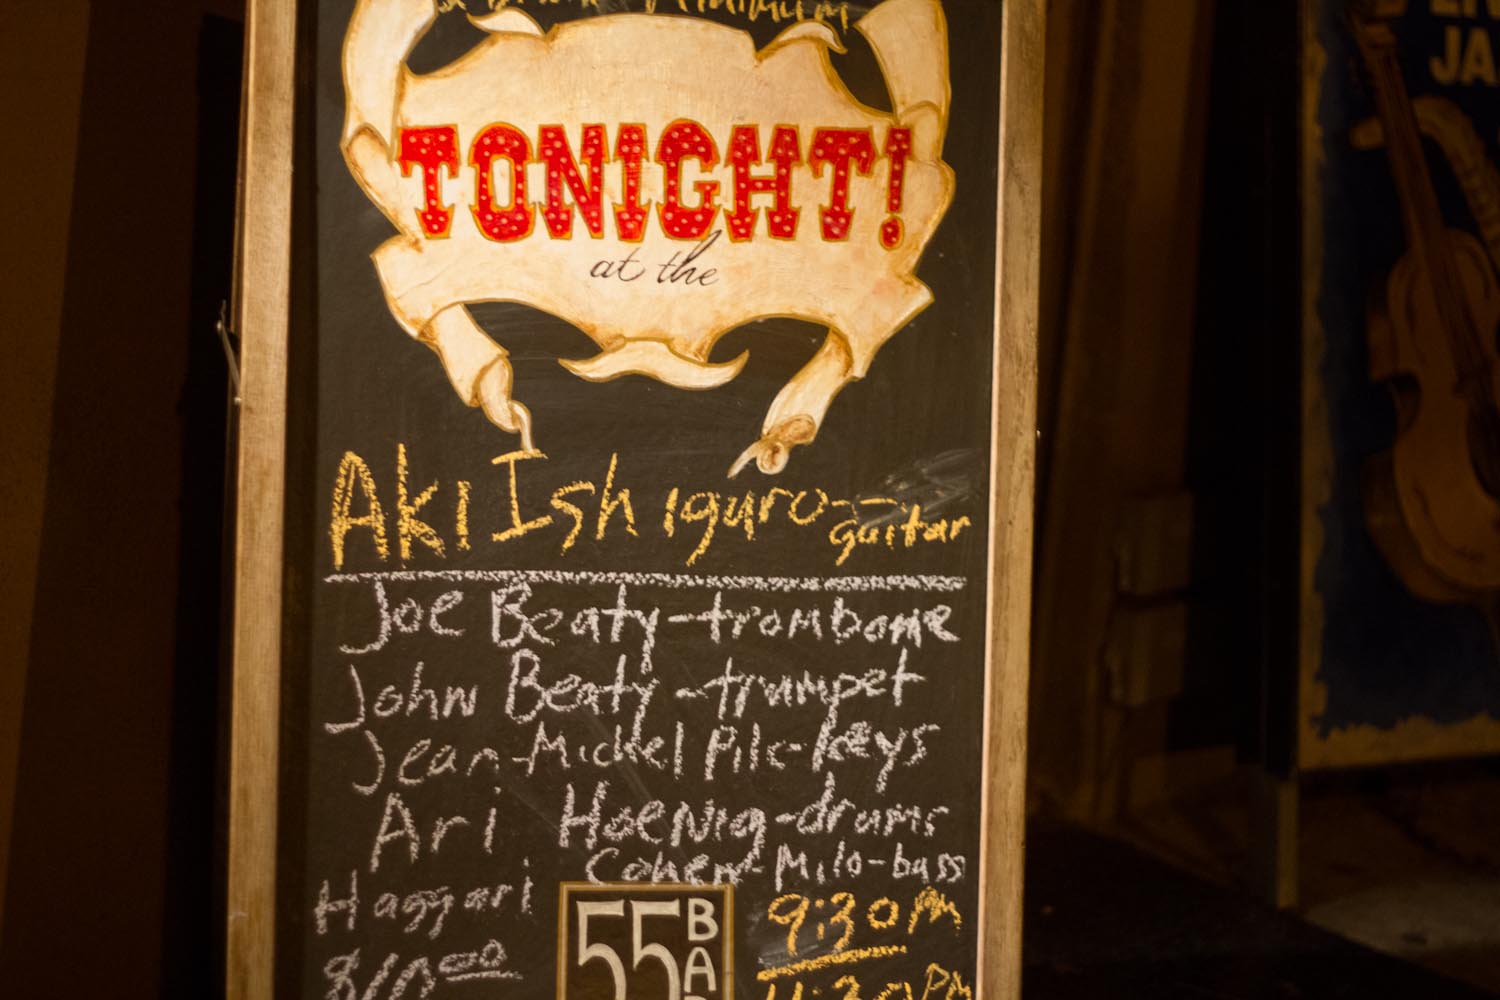 Minimum
TONIGHT!
at the
Aki Ishiguro - guitar
Joe Beaty - trombone
John Beaty - trumpet
Jean-Michel Pilc - keys
Ari Hoenig - drums
Haggari Cohen - Milo - bass
$10.00
55 BAR
9:30 PM
11:30 PM
LIV
JA